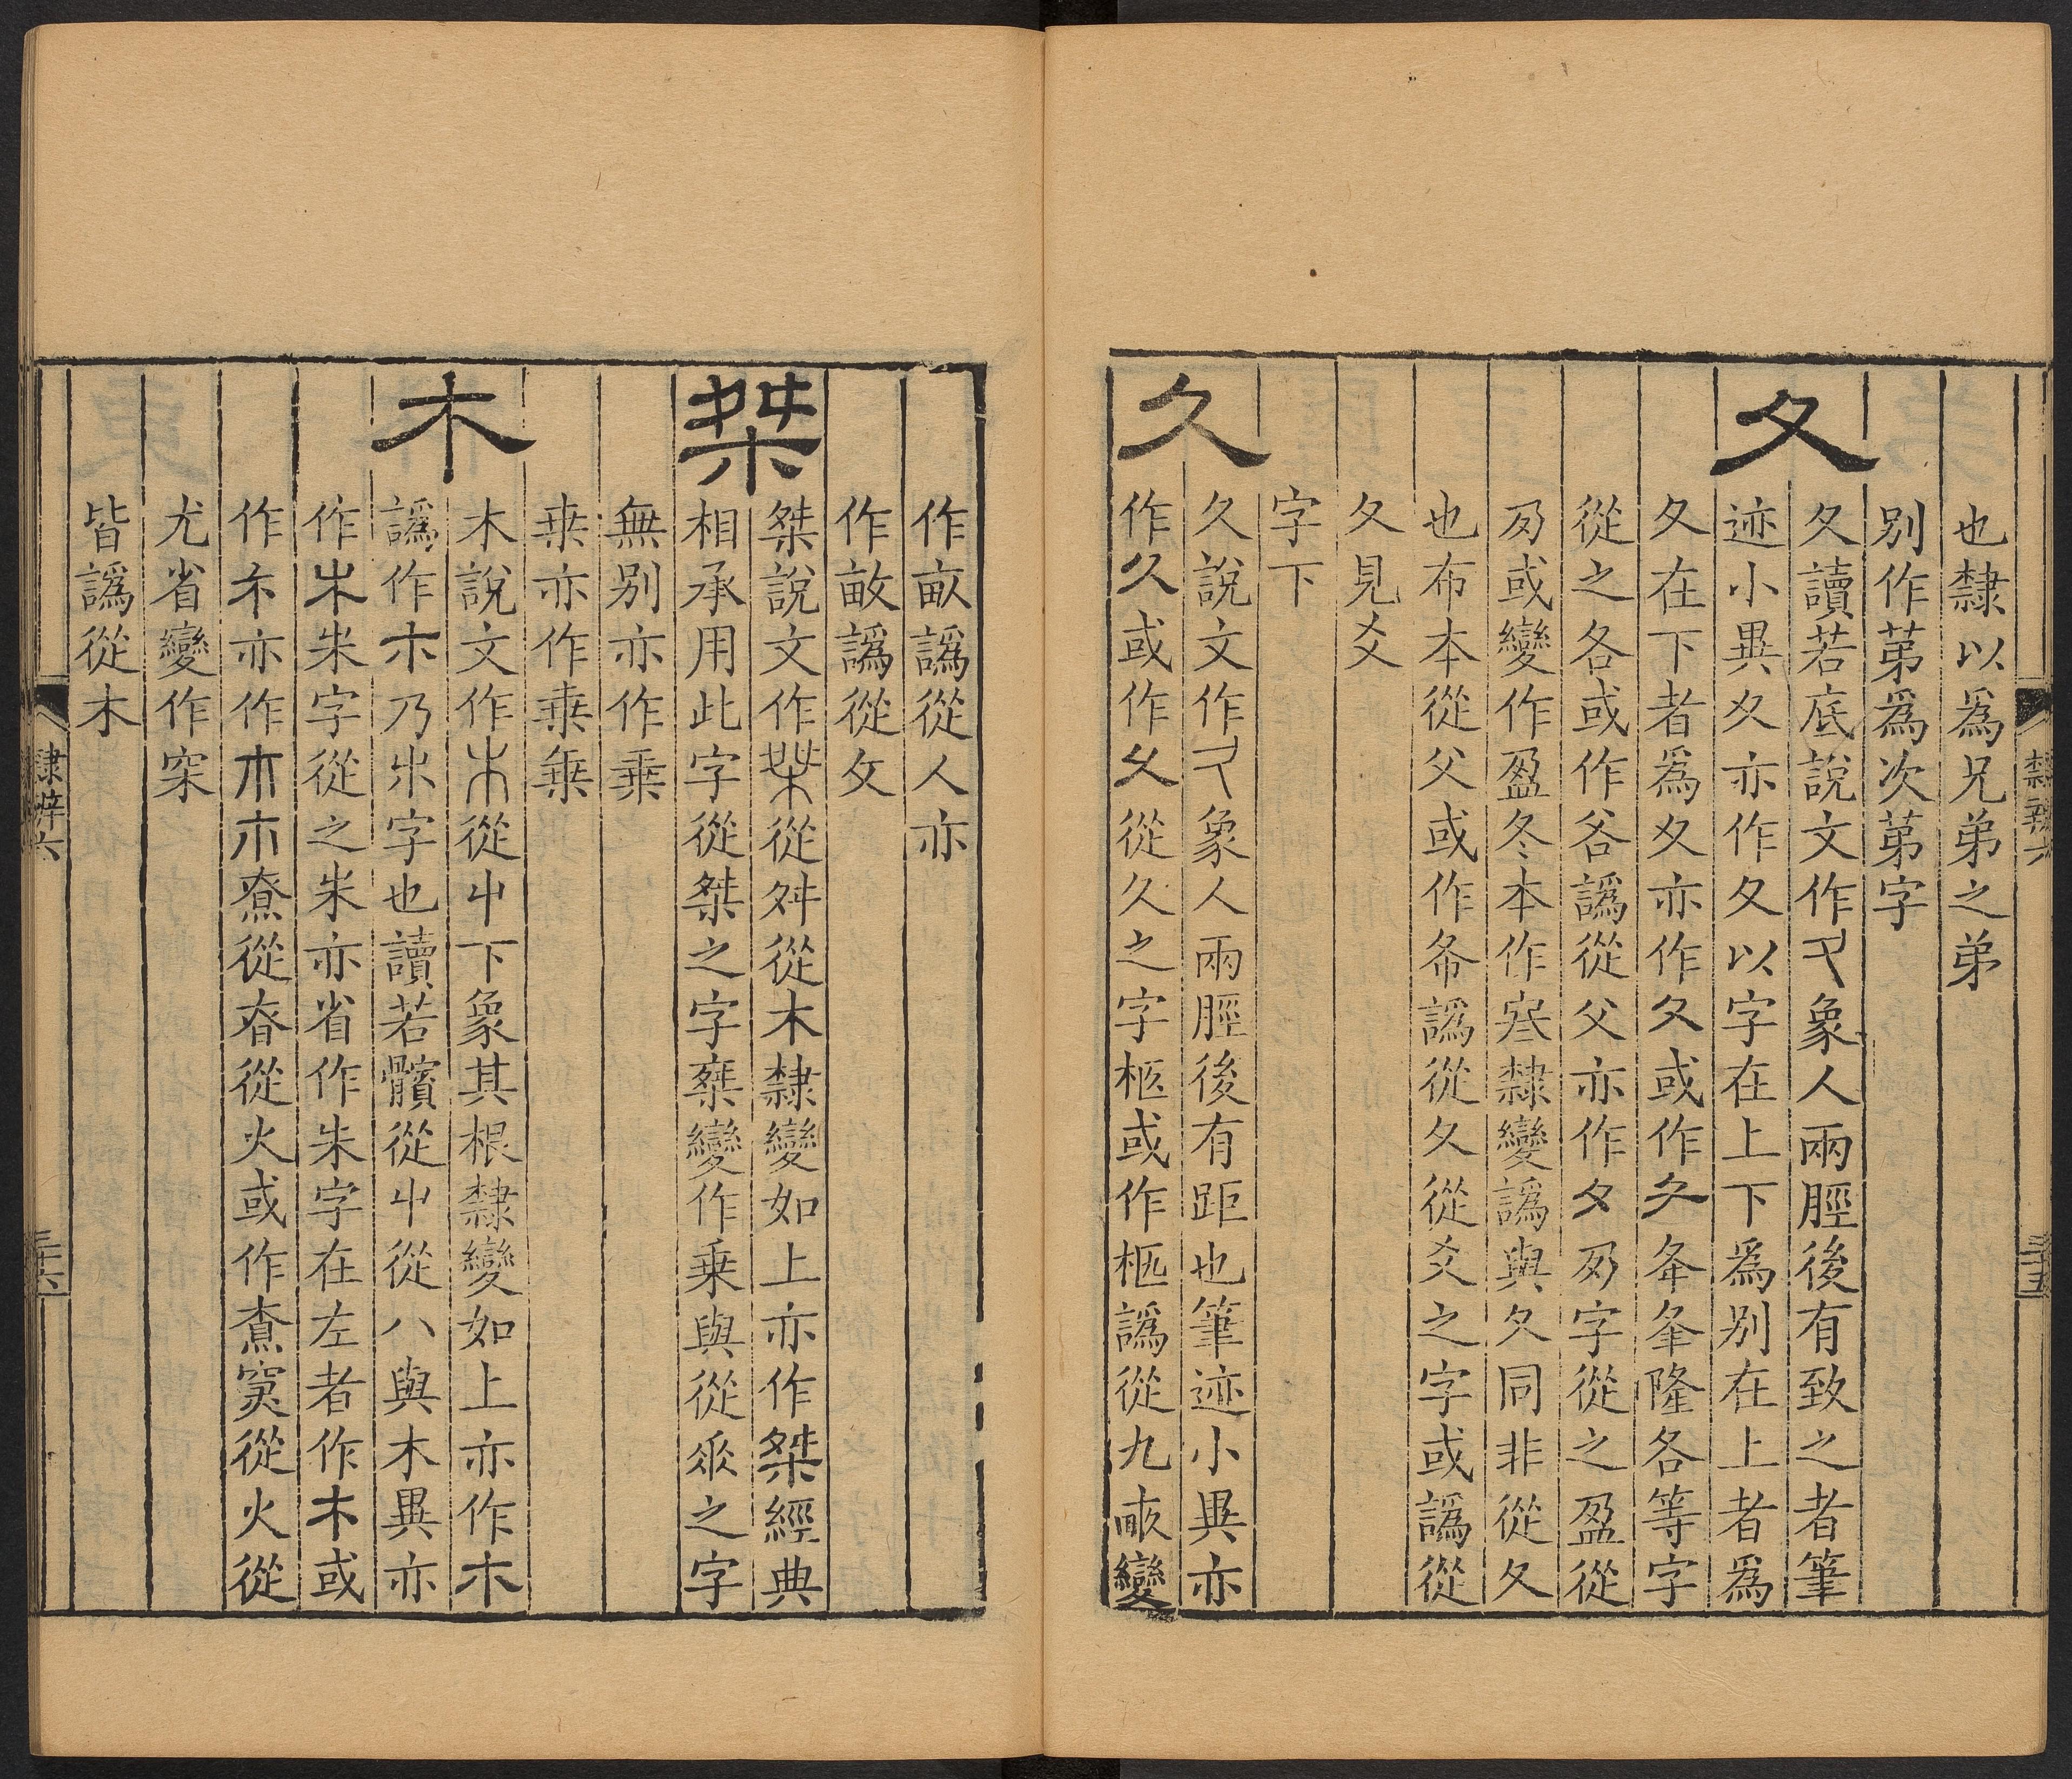 也隸以爲兄弟之弟
別作苐爲次苐字
夂
夂讀若厎說文作象人兩脛後有致之者筆
迹小異夂亦作夂以字在上下爲別在上者爲
夂在下者爲夂亦作夂或作夅夆隆各等字
從之各或作咎譌從父亦作夃字從之盈從
夃或變作盈冬本作寒隸變譌與夂同非從夂
也布本從父或作希譌從夂從爻之字或譌從
夂見爻
字下
久
久說文作象人兩脛後有距也筆迹小異亦
作久或作從久之字柩或作柩譌從九畞變
隸辨六
三十五
作畝譌從人亦
作畞譌從攵
桀
桀說文作從舛從木隸變如上亦作桀經典
相承用此字從桀之字椉變作乗與從𠂹之字
無別亦作乘
乗亦作乗乗
木
木說文作從屮下象其根隸變如上亦作木
譌作乃字也讀若髕從屮從八與木異亦
作朱字從之朱亦省作朱字在左者作木或
作亦作尞從昚從火或作尞窠從火從
尢省變作罙
皆譌從木
隸辨六
三十六